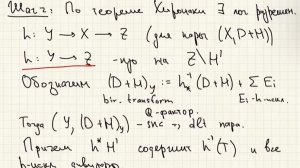 Шаг 2: По теореме Хиронаки ∃ лог разрешен.
h: Y → X → Z (для пары (X, D+H)
h: Y → Z - изо на Z\H'
Обозначим (D+H)_Y := h_*^{-1}(D+H) + ΣEi
bir. transform Ei - h-искл.
Q-фактор.
Тогда (Y, (D+H)_Y) - snc ⇒ dlt пара.
Причем h*H' содержит h^{-1}(T) и все
h-искл дивизоры